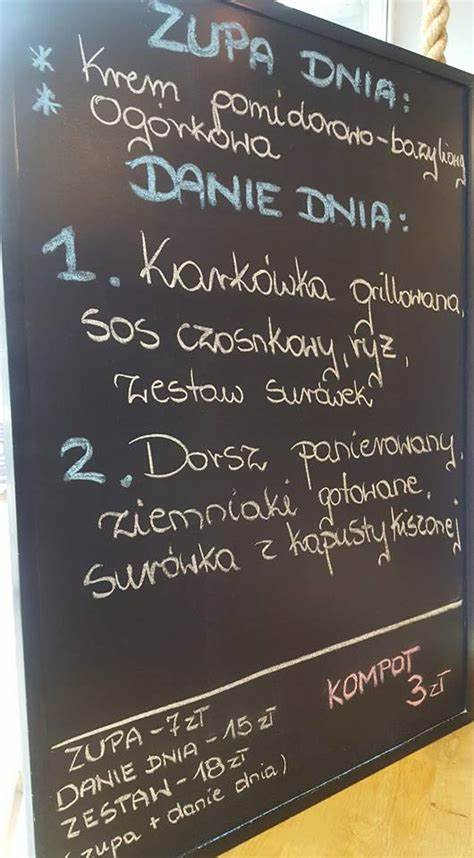 ZUPA DNIA:
* Krem pomidorowo-bazyliowy
* Ogórkowa
DANIE DNIA:
1. Karkówka grillowana,
sos czosnkowy, ryż,
zestaw surówek
2. Dorsz panierowany,
ziemniaki gotowane,
surówka z kapusty kiszonej
KOMPOT
3 zł
ZUPA - 7 zł
DANIE DNIA - 15 zł
ZESTAW - 18 zł
(zupa + danie dnia)